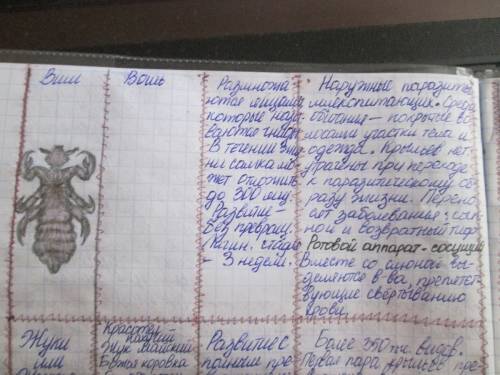 Вши
Вошь
Размножа-
ются яйцами
которые назы-
ваются гниды
В течении жиз-
ни самка мо-
жет отложить
до 300 яиц.
Развитие -
без превращ.
Личин. стадия
- 3 недели.
Наружные паразиты
млекопитающих. Среда
обитания - покрытые во-
лосами участки тела и
одежда. Крыльев нет
утрачены при переходе
к паразитическому об-
разу жизни. Перено-
сят заболевания: сып-
ной и возвратный тиф.
Ротовой аппарат - сосущий
Вместе со слюной вы-
деляются в-ва, препятст-
вующие свёртыванию
крови.
Жуки
или
Красотел
пахучий
Жук Майский
Божья коровка
Развитие с
полным пре-
Более 350 тыс. видов.
Первая пара крыльев пре-